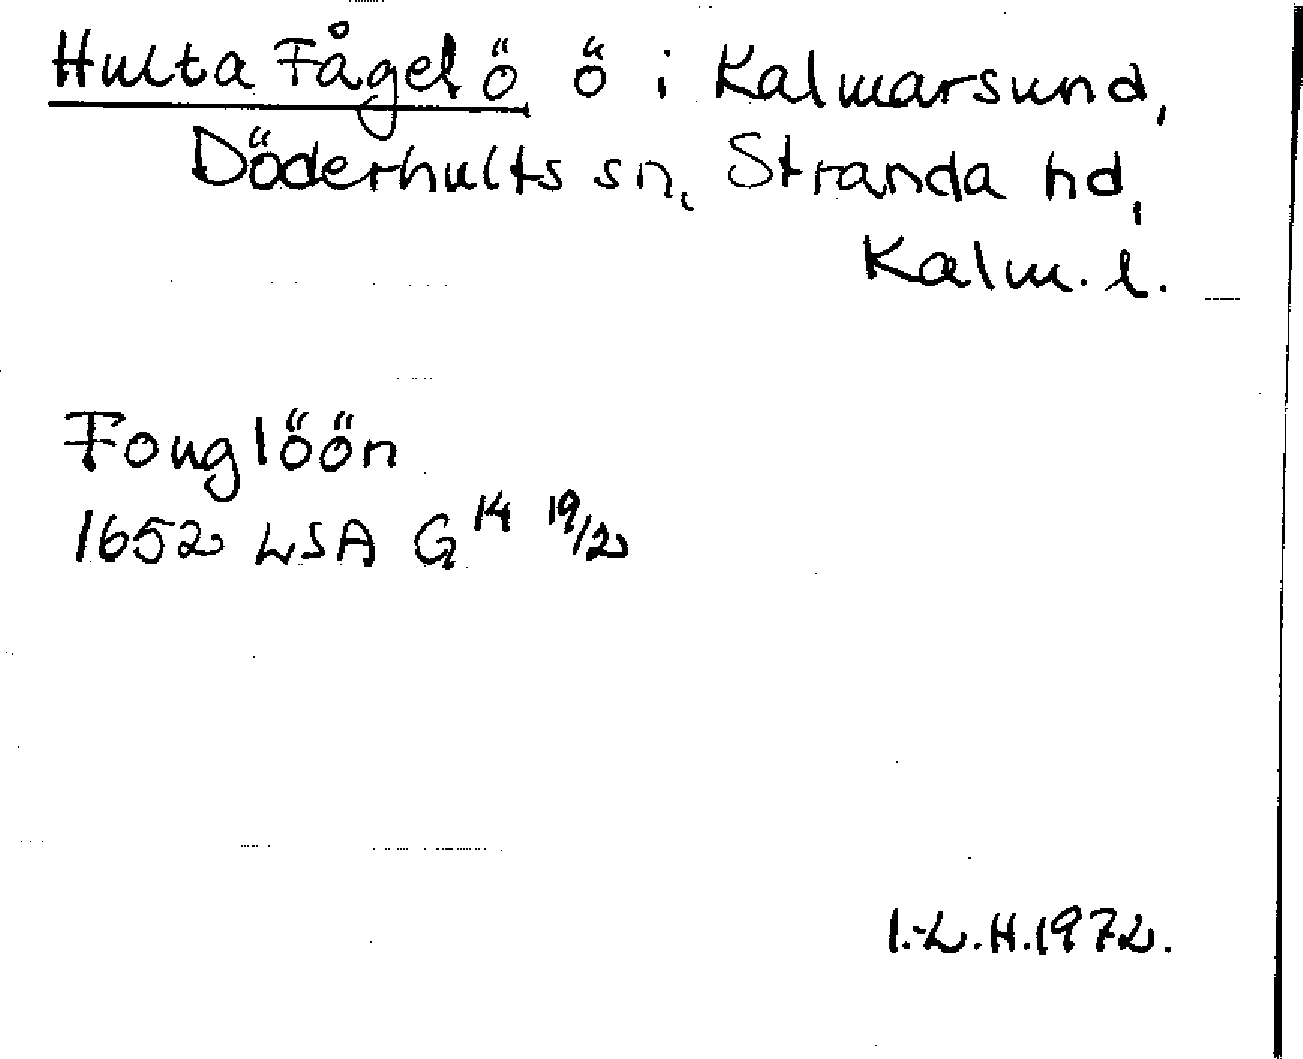 Hulta Fågelö ö i Kalmarsund,
Döderhults sn, Stranda hd,
Kalm. l.
Fouglöön
1652 LSA G 14 19/2
I.-L.H. 1972.